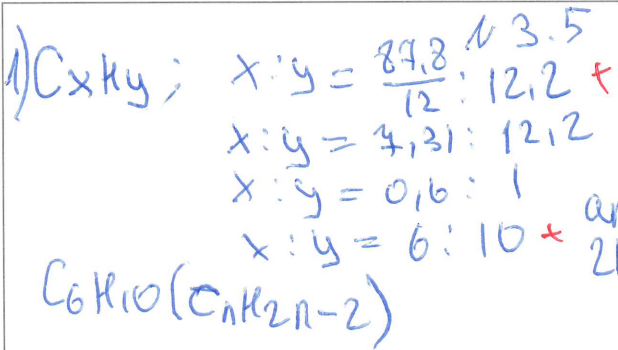 № 3.5
1) CxHy; x:y = 87,8/12 : 12,2 +
x:y = 7,31 : 12,2
x:y = 0,6 : 1
x:y = 6 : 10 +
C6H10 (CnH2n-2)